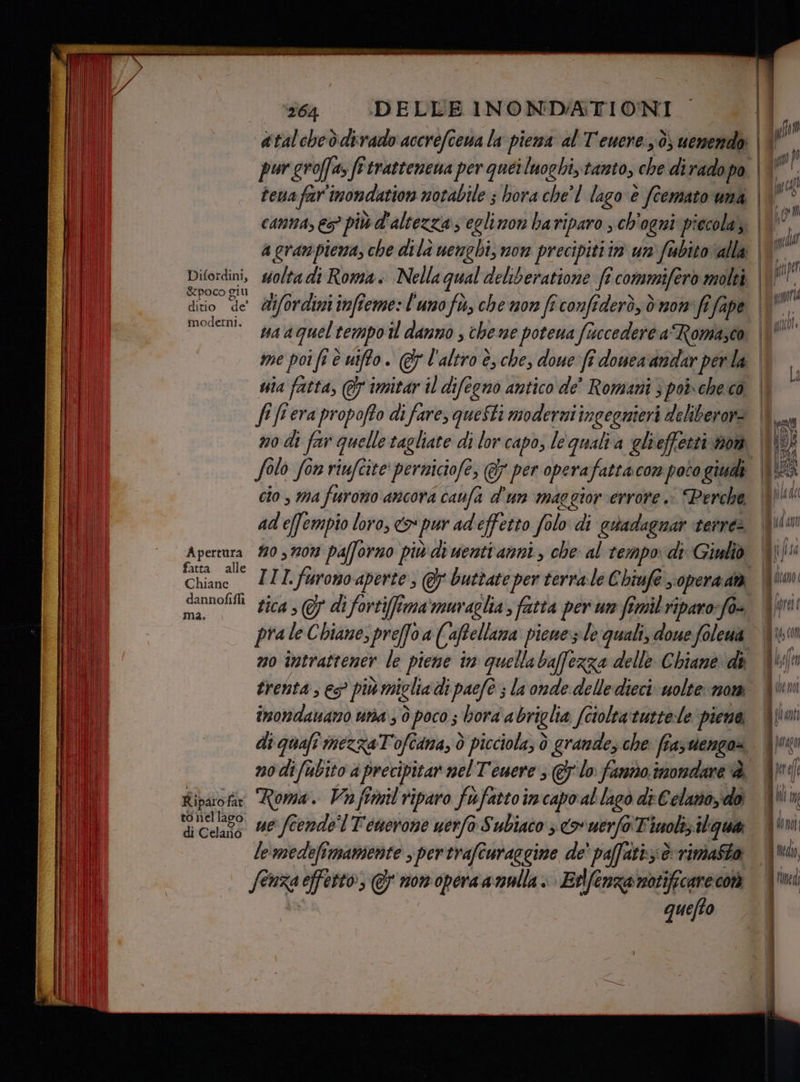 264 DELLE INONDATIONI
a tal che ò di rado accreſceua la piena al Teuere, ò, uenendo
pur groſſa, ſi tratteneua per quei luoghi, tanto, che di rado po
teua far inondation notabile ; hora che'l lago è ſcemato una
canna, & più d'altezza, egli non ha riparo, ch'ogni piccola,
a gran piena, che di là uenghi, non precipiti in un ſubito alla
uolta di Roma. Nella qual deliberatione ſi commiſero molti
diſordini inſieme: l'uno fù, che non ſi conſiderò, ò non ſi ſape
ua a quel tempo il danno, che ne poteua ſuccedere a Roma, co
me poi ſi è uiſto. & l'altro è, che, doue ſi doueа andar per la
uia fatta, & imitar il diſegno antico de' Romani ; poi che cò
ſi ſi era propoſto di fare, queſti moderni ingegnieri deliberor-
no di far quelle tagliate di lor capo, le quali a gli effetti non
ſolo ſon riuſcite pernicioſe, & per opera fatta con poco giudi
cio, ma furono ancora cauſa d'un maggior errore. Perche
ad eſſempio loro, & pur ad effetto ſolo di guadagnar terre-
no, non paſſorno più di uenti anni, che al tempo di Giulio
III. furono aperte, & buttate per terra le Chiuſe, opera an
tica, & di fortiſſima muraglia, fatta per un ſimil riparo ſo-
pra le Chiane, preſſo a Caſtellana pieue; le quali, doue ſoleua
no intrattener le piene in quella baſſezza delle Chiane di
trenta, & più miglia di paeſe ; la onde delle dieci uolte non
inondauano una, ò poco ; hora a briglia ſciolta tutte le piene
di quaſi mezza Toſcana, ò picciola, ò grande, che ſia, uengo-
no di ſubito a precipitar nel Teuere, & lo fanno inondare à
Roma. Vn ſimil riparo fu fatto in capo al lago di Celano, dò
ue ſcende'l Teuerone uerſo Subiaco, & uerſo Tiuoli, il qua
le medeſimamente, per traſcuraggine de' paſſati, è rimaſto
ſenza effetto, & non opera a nulla. Et ſenza notificare con
queſto
Diſordini,
& poco giu
ditio de'
moderni.
Apertura
fatta alle
Chiane
dannoſiſſi
ma.
Riparo fat
to nel lago
di Celano